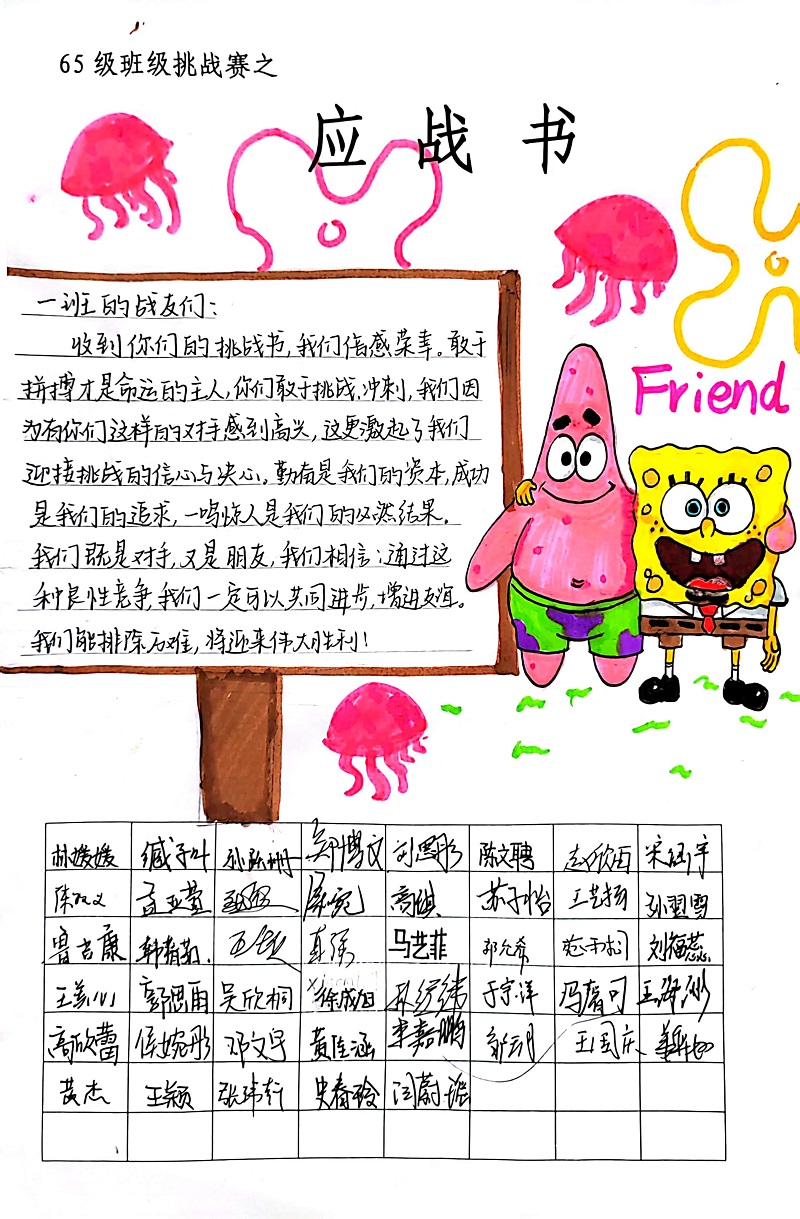 65级班级挑战赛之
应战书
一班的战友们:
收到你们的挑战书,我们倍感荣幸。敢于
拼搏才是命运的主人,你们敢于挑战,冲刺,我们因
为有你们这样的对手感到高兴,这更激起了我们
迎接挑战的信心与决心。勤奋是我们的资本,成功
是我们的追求,一鸣惊人是我们的必然结果。
我们既是对手,又是朋友,我们相信:通过这
种良性竞争,我们一定可以共同进步,增进友谊。
我们能排除万难,将迎来伟大胜利!
Friend
林媛媛 臧子叶 郑博文 刘恩彤 陈文聘 赵欣雨 宋涵宇
孟亚萱 高鹍 苏子怡 王艺扬 孙翌雪
鲁吉康 韩青茹 马艺菲 郭允希
郭思雨 吴欣桐 徐成旭 于宗洋 冯睿可 王海洲
高欣蕾 侯婉彤 邓文宇 黄佳涵 李嘉鹏 王国庆
黄杰 王颖 张玮钰 史春玲 闫蔚瑶